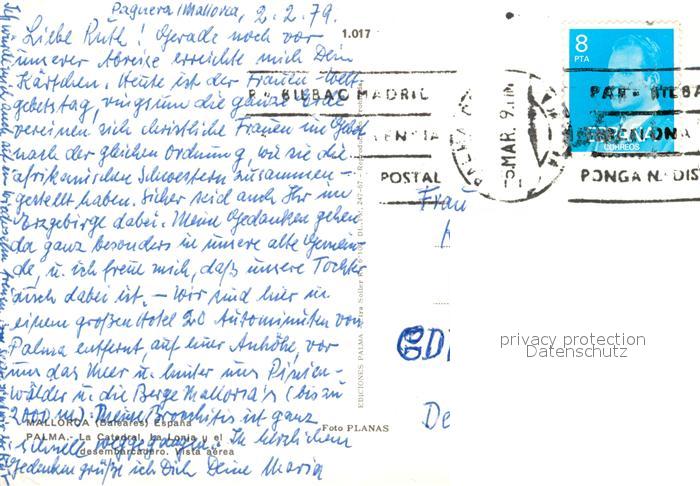 Paguera/Mallorca, 2.2.79.
Liebe Ruth! Gerade noch vor
unserer Abreise erreichte mich Dein
Kärtchen. Heute ist der Frauen-Welt-
gebetstag, ringsum die ganze Erde
vereinen sich christliche Frauen im Gebet
nach der gleichen Ordnung, wie sie die
afrikanischen Schwestern zusammen-
gestellt haben. Sicher seid auch Ihr im
Erzgebirge dabei. Meine Gedanken gehen
da ganz besonders in unsere alte Gemein-
de, u. ich freue mich, daß unsere Tochter
auch dabei ist. – Wir sind hier in
einem großen Hotel 20 Autominuten von
Palma entfernt, auf einer Anhöhe, vor
uns das Meer u. hinter uns Pinien-
wälder u. die Berge Mallorca's (bis zu
2000 m). Meine Bronchitis ist ganz
schnell weggegangen. In herzlichem
Gedenken grüße ich Dich Deine Maria
Ich würde mich auch
MALLORCA (Baleares) España
PALMA.- La Catedral, La Lonja y el
desembarcadero. Vista aérea
Foto PLANAS
EDICIONES PALMA
1.017
8
PTA
CORREOS
BILBAO MADRID
POSTAL
MAR. 9
BILBA
BARCELONA
PONGA N. DIS
Frau
DD
De
privacy protection
Datenschutz